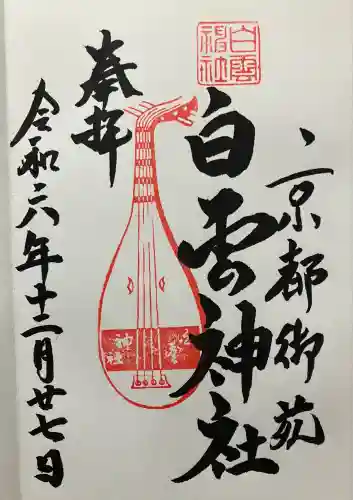 京都御苑
白雲神社
奉拝
令和六年十二月廿七日
白雲神社